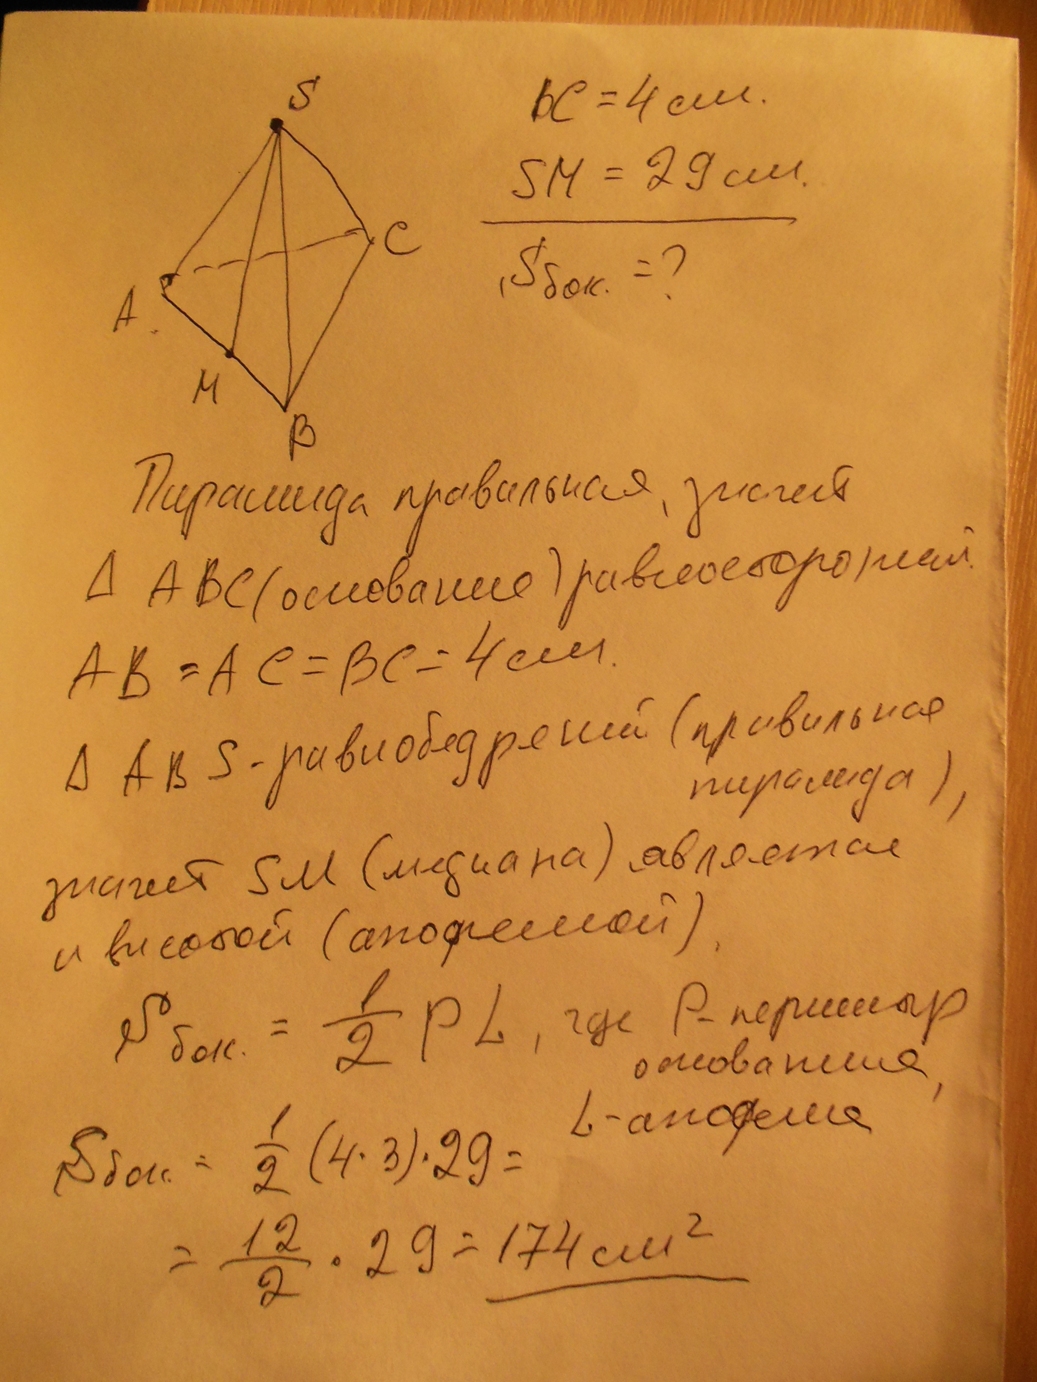 S
BC = 4 см.
SM = 29 см.
Sбок. = ?
C
A
M
B
Пирамида правильная, значит
Δ ABC (основание) равносторонний.
AB = AC = BC = 4 см.
Δ ABS - равнобедренный (правильная
пирамида),
значит SM (медиана) является
и высотой (апофемой).
Sбок. = 1/2 P L, где P - периметр
основания,
L - апофема
Sбок. = 1/2 (4·3)·29 =
= 12/2 · 29 = 174 см²